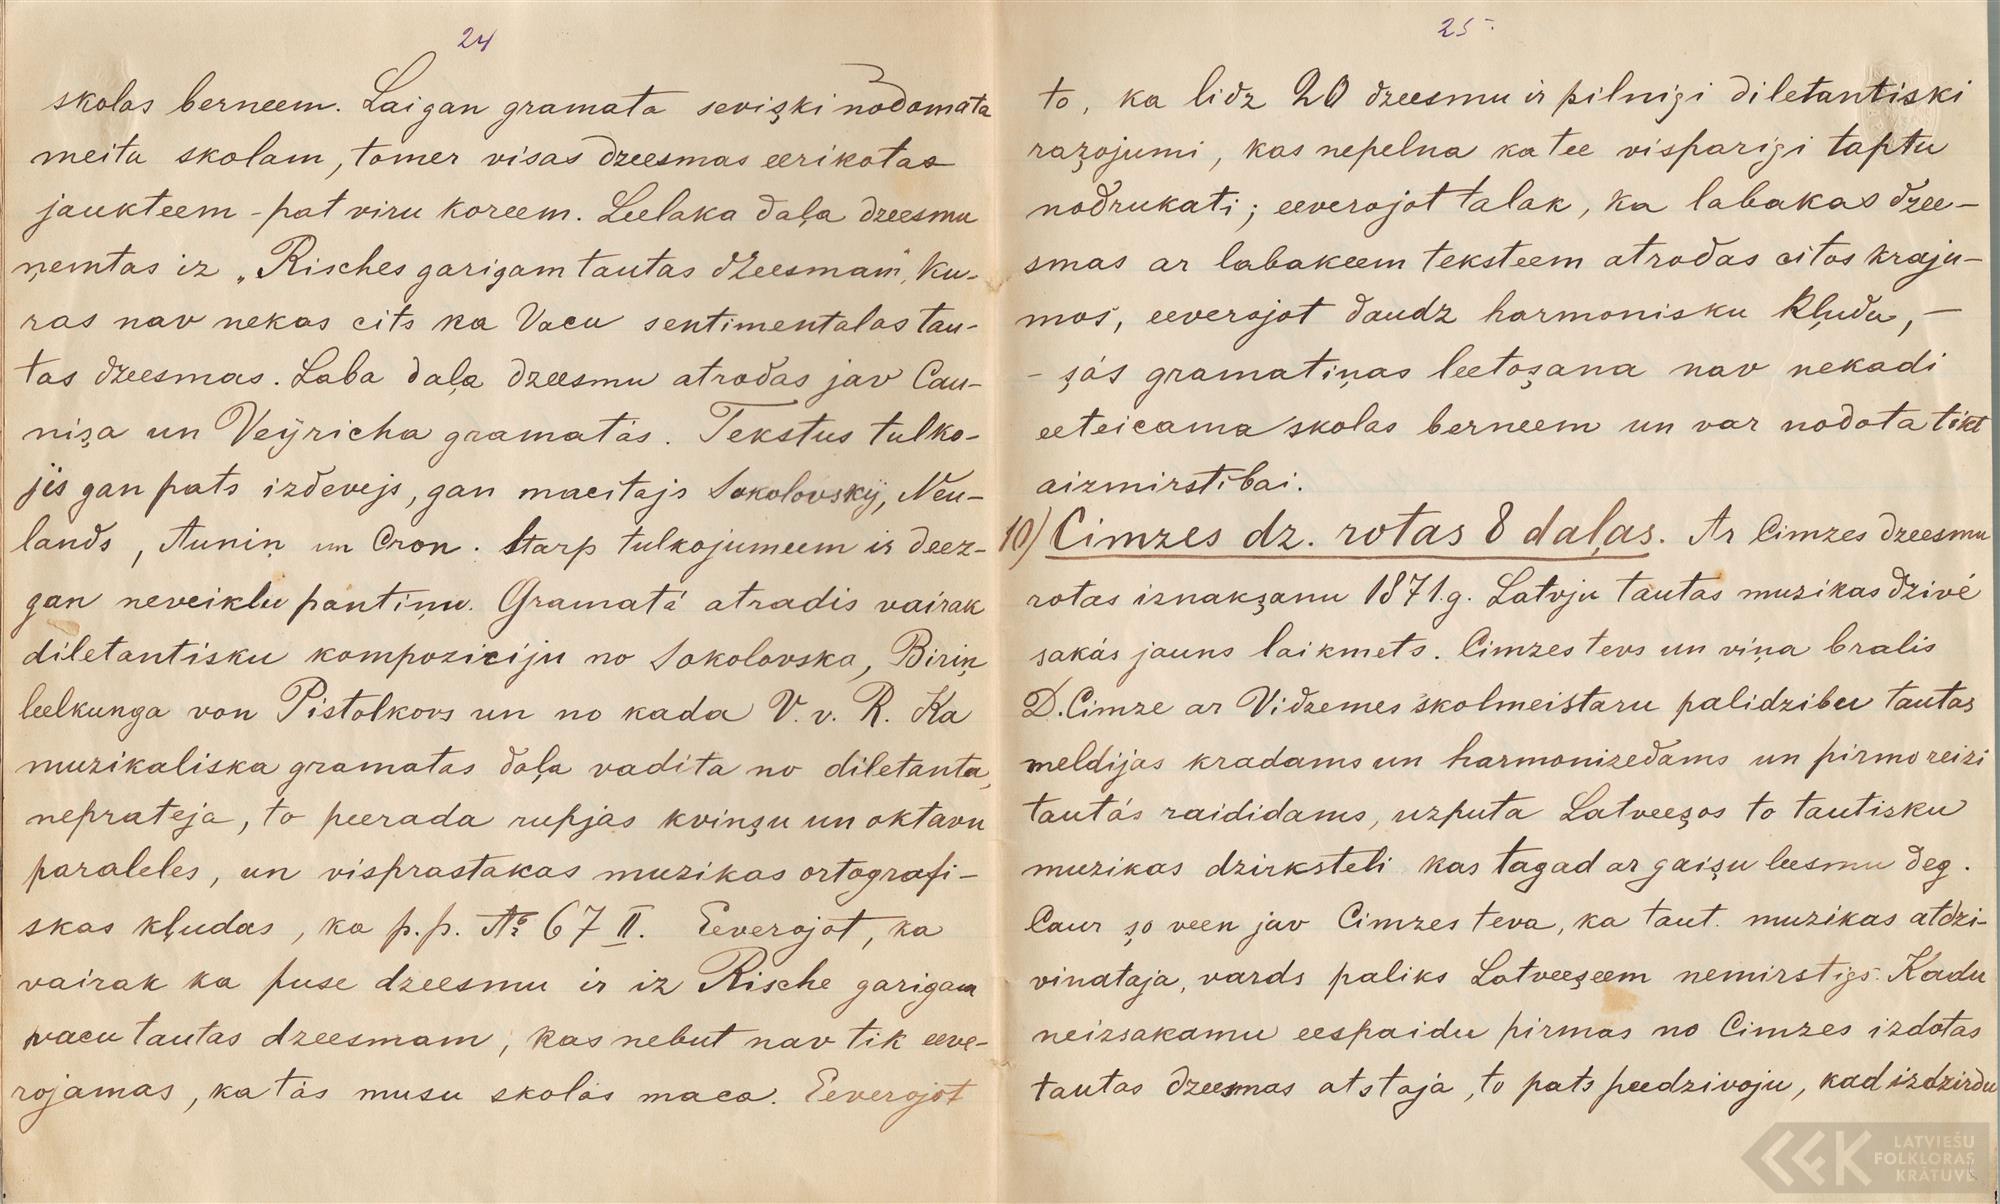 24
skolas berneem. Lai gan gramata sevişki nodomata
meitu skolam, tomer visas dzeesmas eerikotas
jaukteem - pat viru koreem. Leelaka daļa dzeesmu
ņemtas iz „Risches garigam tautas dzeesmam", ku-
ras nav nekas cits ka Vacu sentimentalas tau-
tas dzeesmas. Laba daļa dzeesmu atrodas jav Cau-
nişa un Veÿricha gramatás. Tekstus tulko-
jis gan pats izdevejs, gan macitajs Sokolovskÿ, Neu-
lands, Auniņ un Cron. Starp tulkojumeem ir deez-
gan neveiklu pantiņu. Gramatá atradis vairak
diletantisku kompoziciju no Sokolovska, Biriņ
leelkunga von Pistolkors un no kada V. v. R. Ka
muzikaliska gramatas daļa vadita no diletanta,
neprateja, to peerada rupjas kvinşu un oktavu
paraleles, un visprastakas muzikas ortografi-
skas kļudas, ka p. p. № 67 II. Eeverojot, ka
vairak ka puse dzeesmu ir iz Rische garigam
vacu tautas dzeesmam, kas nebut nav tik eeve-
rojamas, ka tás musu skolás maca. Eeverojot
25
to, ka lidz 20 dzeesmu ir pilnigi diletantiski
raşojumi, kas nepelna ka tee visparigi taptu
nodrukati; eeverojot talak, ka labakas dzee-
smas ar labakeem teksteem atrodas citos kraju-
mos, eeverojot daudz harmonisku kļudu, -
- şás gramatiņas leetoşana nav nekadi
eeteicama skolas berneem un var nodota tikt
aizmirstibai.
10) Cimzes dz. rotas 8 daļas. Ar Cimzes dzeesmu
rotas iznakşanu 1871 g. Latvju tautas muzikas dzivé
sakás jauns laikmets. Cimzes tevs un viņa bralis
D. Cimze ar Vidzemes skolmeistaru palidzibu tautas
meldijas kradams un harmonizedams un pirmo reizi
tautás raididams, uzputa Latveeşos to tautisku
muzikas dzirksteli kas tagad ar gaişu leesmu deg.
Caur şo veen jav Cimzes teva, ka taut. muzikas atdzi-
vinataja, vards paliks Latveeşeem nemirstigs. Kadu
neizsakamu eespaidu pirmas no Cimzes izdotas
tautas dzeesmas atstaja, to pats peedzivoju, kad izdzirdu
LATVIEŠU
FOLKLORAS
KRĀTUVE